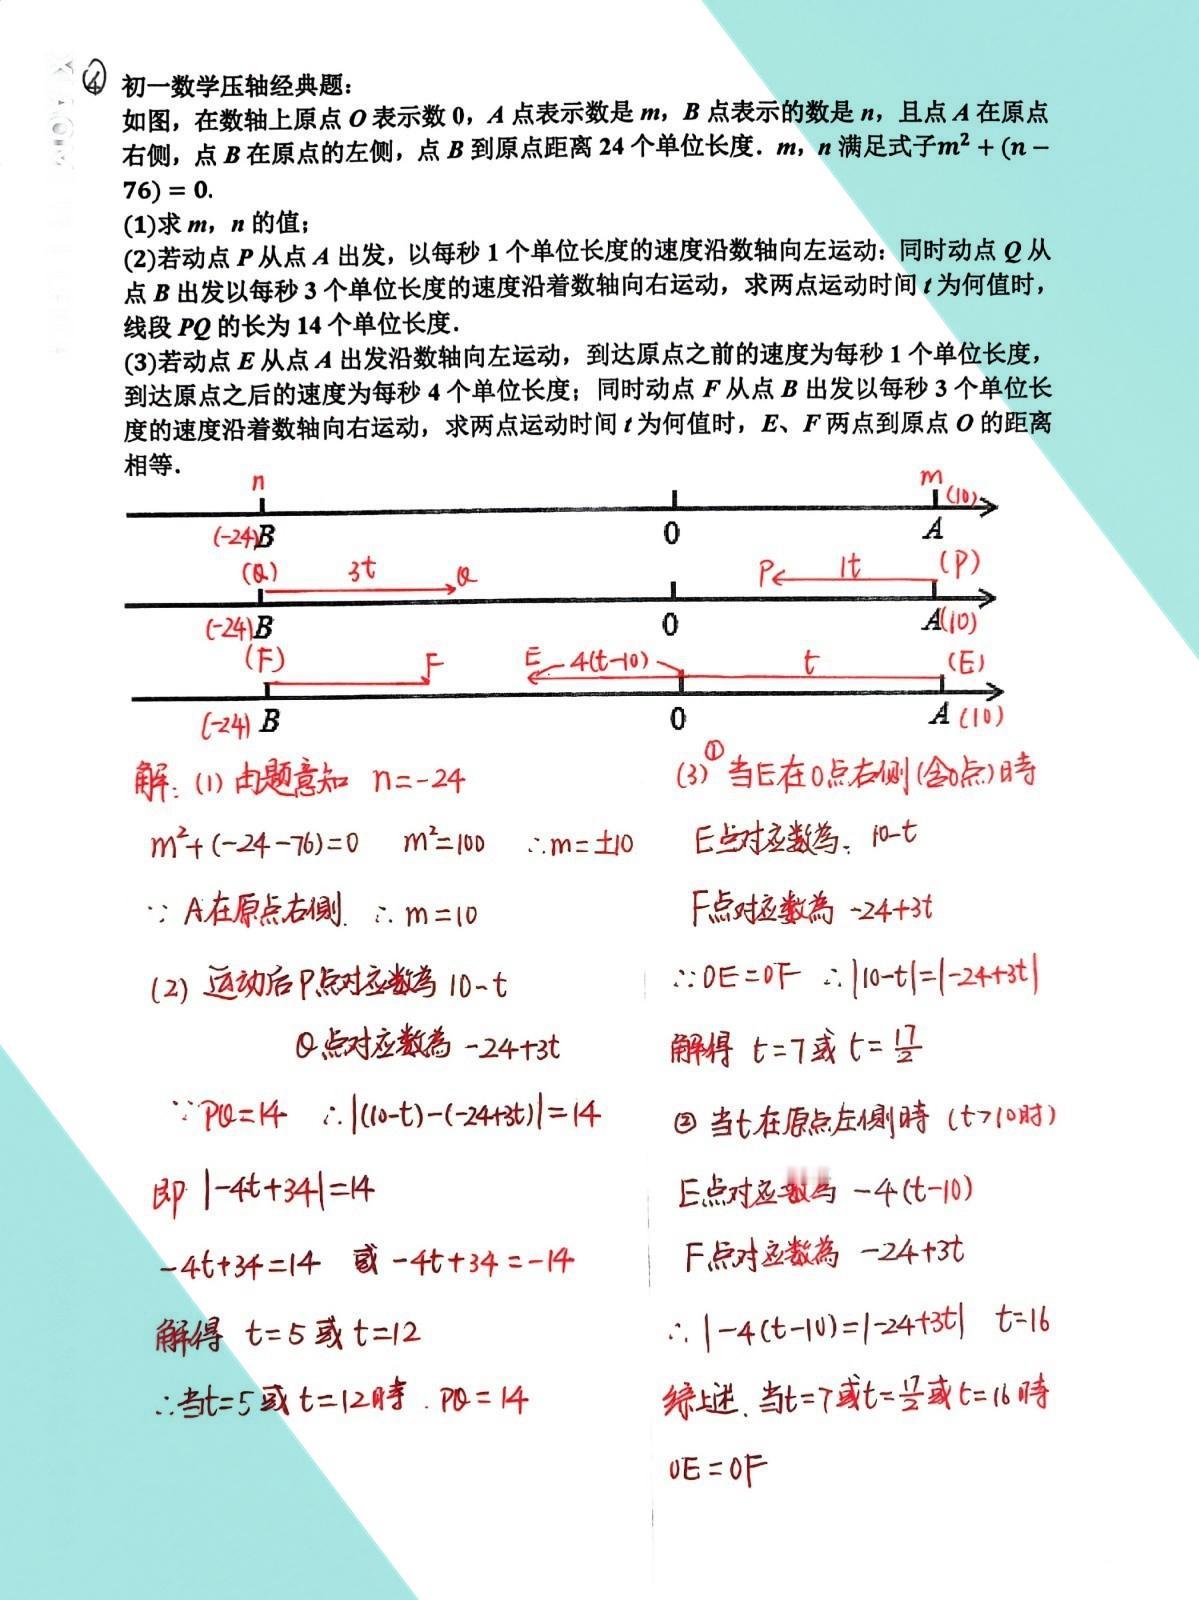 ④ 初一数学压轴经典题:
如图，在数轴上原点 O 表示数 0，A 点表示数是 m，B 点表示的数是 n，且点 A 在原点
右侧，点 B 在原点的左侧，点 B 到原点距离 24 个单位长度．m，n 满足式子m² + (n −
76) = 0.
(1)求 m，n 的值；
(2)若动点 P 从点 A 出发，以每秒 1 个单位长度的速度沿数轴向左运动；同时动点 Q 从
点 B 出发以每秒 3 个单位长度的速度沿着数轴向右运动，求两点运动时间 t 为何值时，
线段 PQ 的长为 14 个单位长度．
(3)若动点 E 从点 A 出发沿数轴向左运动，到达原点之前的速度为每秒 1 个单位长度，
到达原点之后的速度为每秒 4 个单位长度；同时动点 F 从点 B 出发以每秒 3 个单位长
度的速度沿着数轴向右运动，求两点运动时间 t 为何值时，E、F 两点到原点 O 的距离
相等．
n m (10)
(-24) B 0 A
(Q) 3t Q P 1t (P)
(-24) B 0 A (10)
(F) F E 4(t-10) t (E)
(-24) B 0 A (10)
解: (1) 由题意知 n=-24
m²+(-24-76)=0 m²=100 ∴m=±10
∵ A在原点右侧. ∴ m=10
(2) 运动后P点对应数為 10-t
Q点对应数為 -24+3t
∵PQ=14 ∴|(10-t)-(-24+3t)|=14
即 |-4t+34|=14
-4t+34=14 或 -4t+34=-14
解得 t=5 或 t=12
∴当t=5 或 t=12時. PQ=14
(3) ①当E在O点右侧(含O点)時
E点对应数為: 10-t
F点对应数為 -24+3t
∵OE=OF ∴|10-t|=|-24+3t|
解得 t=7 或 t=17/2
② 当t在原点左侧時 (t>10时)
E点对应数為 -4(t-10)
F点对应数為 -24+3t
∴|-4(t-10)=|-24+3t| t=16
综上述. 当t=7或t=17/2或t=16時
OE=OF